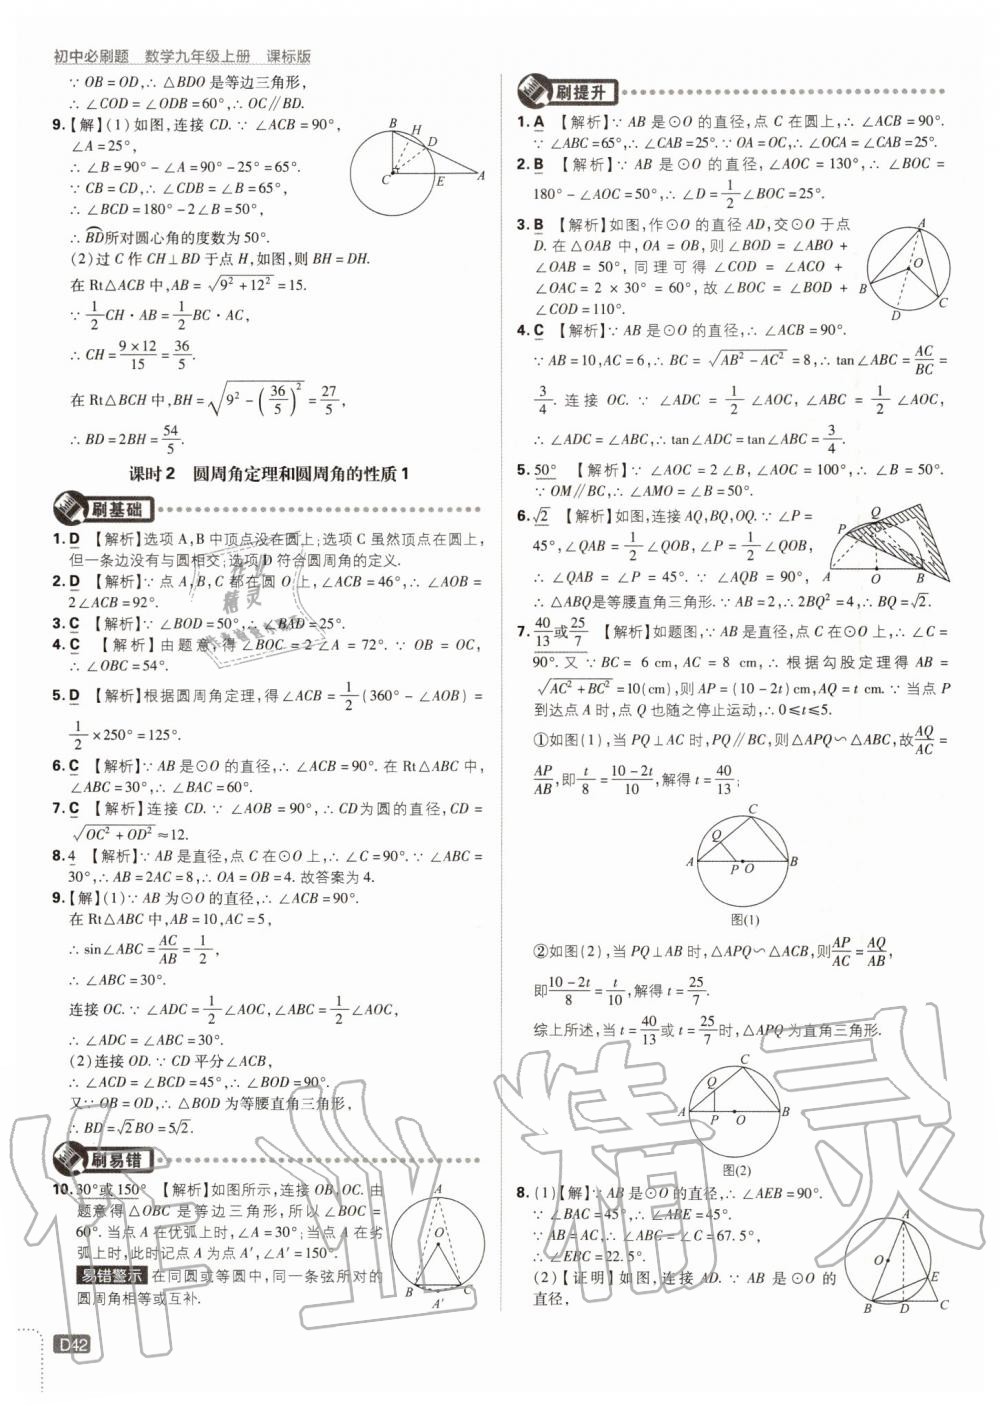 初中必刷题 数学九年级上册 课标版
∵ OB = OD,∴ △BDO 是等边三角形,
∴ ∠COD = ∠ODB = 60°,∴ OC∥BD.
9.【解】(1) 如图, 连接 CD. ∵ ∠ACB = 90°,
∠A = 25°,
∴ ∠B = 90° − ∠A = 90° − 25° = 65°.
∵ CB = CD,∴ ∠CDB = ∠B = 65°,
∴ ∠BCD = 180° − 2∠B = 50°,
∴ B͡D所对圆心角的度数为 50°.
(2)过 C 作 CH⊥BD 于点 H,如图,则 BH = DH.
在 Rt△ACB 中,AB = √(9² + 12²) = 15.
∵ 1/2 CH · AB = 1/2 BC · AC,
∴ CH = (9 × 12)/15 = 36/5.
在 Rt△BCH 中,BH = √(9² − (36/5)²) = 27/5,
∴ BD = 2BH = 54/5.
B H D C E A
课时2 圆周角定理和圆周角的性质1
刷基础
1. D 【解析】选项 A,B 中顶点没在圆上;选项 C 虽然顶点在圆上,
但一条边没有与圆相交;选项 D 符合圆周角的定义.
2. D 【解析】∵ 点 A,B,C 都在圆 O 上,∠ACB = 46°,∴ ∠AOB =
2∠ACB = 92°.
3. C 【解析】∵ ∠BOD = 50°,∴ ∠BAD = 25°.
4. C 【解析】由题意,得∠BOC = 2∠A = 72°. ∵ OB = OC,
∴ ∠OBC = 54°.
5. D 【解析】根据圆周角定理,得∠ACB = 1/2 (360° − ∠AOB) =
1/2 × 250° = 125°.
6. C 【解析】∵ AB 是⊙O 的直径,∴ ∠ACB = 90°. 在 Rt△ACB 中,
∠ABC = 30°,∴ ∠BAC = 60°.
7. C 【解析】连接 CD. ∵ ∠AOB = 90°,∴ CD 为圆的直径,CD =
√(OC² + OD²) ≈ 12.
8. 4 【解析】∵ AB 是直径,点 C 在⊙O 上,∴ ∠C = 90°. ∵ ∠ABC =
30°,∴ AB = 2AC = 8,∴ OA = OB = 4. 故答案为 4.
9.【解】(1)∵ AB 为⊙O 的直径,∴ ∠ACB = 90°.
在 Rt△ABC 中,AB = 10,AC = 5,
∴ sin∠ABC = AC/AB = 1/2,
∴ ∠ABC = 30°.
连接 OC. ∵ ∠ADC = 1/2 ∠AOC,∠ABC = 1/2 ∠AOC,
∴ ∠ADC = ∠ABC = 30°.
(2)连接 OD. ∵ CD 平分∠ACB,
∴ ∠ACD = ∠BCD = 45°,∴ ∠BOD = 90°.
又∵ OB = OD,∴ △BOD 为等腰直角三角形,
∴ BD = √2BO = 5√2.
刷易错
10. 30°或 150° 【解析】如图所示,连接 OB,OC. 由
题意得△OBC 是等边三角形,所以∠BOC =
60°. 当点 A 在优弧上时,∠A = 30°;当点 A 在劣
弧上时,此时记点 A 为点 A′,∠A′ = 150°.
易错警示 在同圆或等圆中,同一条弦所对的
圆周角相等或互补.
A O B C A′
D42
刷提升
1. A 【解析】∵ AB 是⊙O 的直径,点 C 在圆上,∴ ∠ACB = 90°.
∵ ∠ABC = 65°,∴ ∠CAB = 25°. ∵ OA = OC,∴ ∠OCA = ∠CAB = 25°.
2. B 【解析】∵ AB 是⊙O 的直径,∠AOC = 130°,∴ ∠BOC =
180° − ∠AOC = 50°,∴ ∠D = 1/2 ∠BOC = 25°.
3. B 【解析】如图,作⊙O 的直径 AD,交⊙O 于点
D. 在△OAB 中,OA = OB,则∠BOD = ∠ABO +
∠OAB = 50°,同理可得∠COD = ∠ACO +
∠OAC = 2 × 30° = 60°,故∠BOC = ∠BOD +
∠COD = 110°.
A O B C D
4. C 【解析】∵ AB 是⊙O 的直径,∴ ∠ACB = 90°.
∵ AB = 10,AC = 6,∴ BC = √(AB² − AC²) = 8,∴ tan∠ABC = AC/BC =
3/4. 连接 OC. ∵ ∠ADC = 1/2 ∠AOC,∠ABC = 1/2 ∠AOC,
∴ ∠ADC = ∠ABC,∴ tan∠ADC = tan∠ABC = 3/4.
5. 50° 【解析】∵ ∠AOC = 2∠B,∠AOC = 100°,∴ ∠B = 50°.
∵ OM∥BC,∴ ∠AMO = ∠B = 50°.
6. √2 【解析】如图,连接 AQ,BQ,OQ. ∵ ∠P =
45°,∠QAB = 1/2 ∠QOB,∠P = 1/2 ∠QOB,
∴ ∠QAB = ∠P = 45°. ∵ ∠AQB = 90°,
∴ △ABQ是等腰直角三角形. ∵ AB = 2,∴ 2BQ² = 4,∴ BQ = √2.
Q P A O B
7. 40/13 或 25/7 【解析】如题图,∵ AB 是直径,点 C 在⊙O 上,∴ ∠C =
90°. 又 ∵ BC = 6 cm,AC = 8 cm,∴ 根据勾股定理得 AB =
√(AC² + BC²) = 10(cm),则 AP = (10 − 2t) cm,AQ = t cm. ∵ 当点 P
到达点 A 时,点 Q 也随之停止运动,∴ 0≤t≤5.
①如图(1),当 PQ⊥AC 时,PQ∥BC,则△APQ∽△ABC,故AQ/AC =
AP/AB,即 t/8 = (10 − 2t)/10,解得 t = 40/13;
C Q A P O B
图(1)
②如图(2),当 PQ⊥AB 时,△APQ∽△ACB,则AP/AC = AQ/AB,
即(10 − 2t)/8 = t/10,解得 t = 25/7.
综上所述,当 t = 40/13 或 t = 25/7 时,△APQ 为直角三角形.
C Q A P O B
图(2)
8. (1)【解】∵ AB 是⊙O 的直径,∴ ∠AEB = 90°.
∵ ∠BAC = 45°,∴ ∠ABE = 45°.
∵ AB = AC,∴ ∠ABC = ∠C = 67.5°,
∴ ∠EBC = 22.5°.
(2)【证明】如图,连接 AD. ∵ AB 是⊙O 的
直径,
A O E B D C
作业精灵